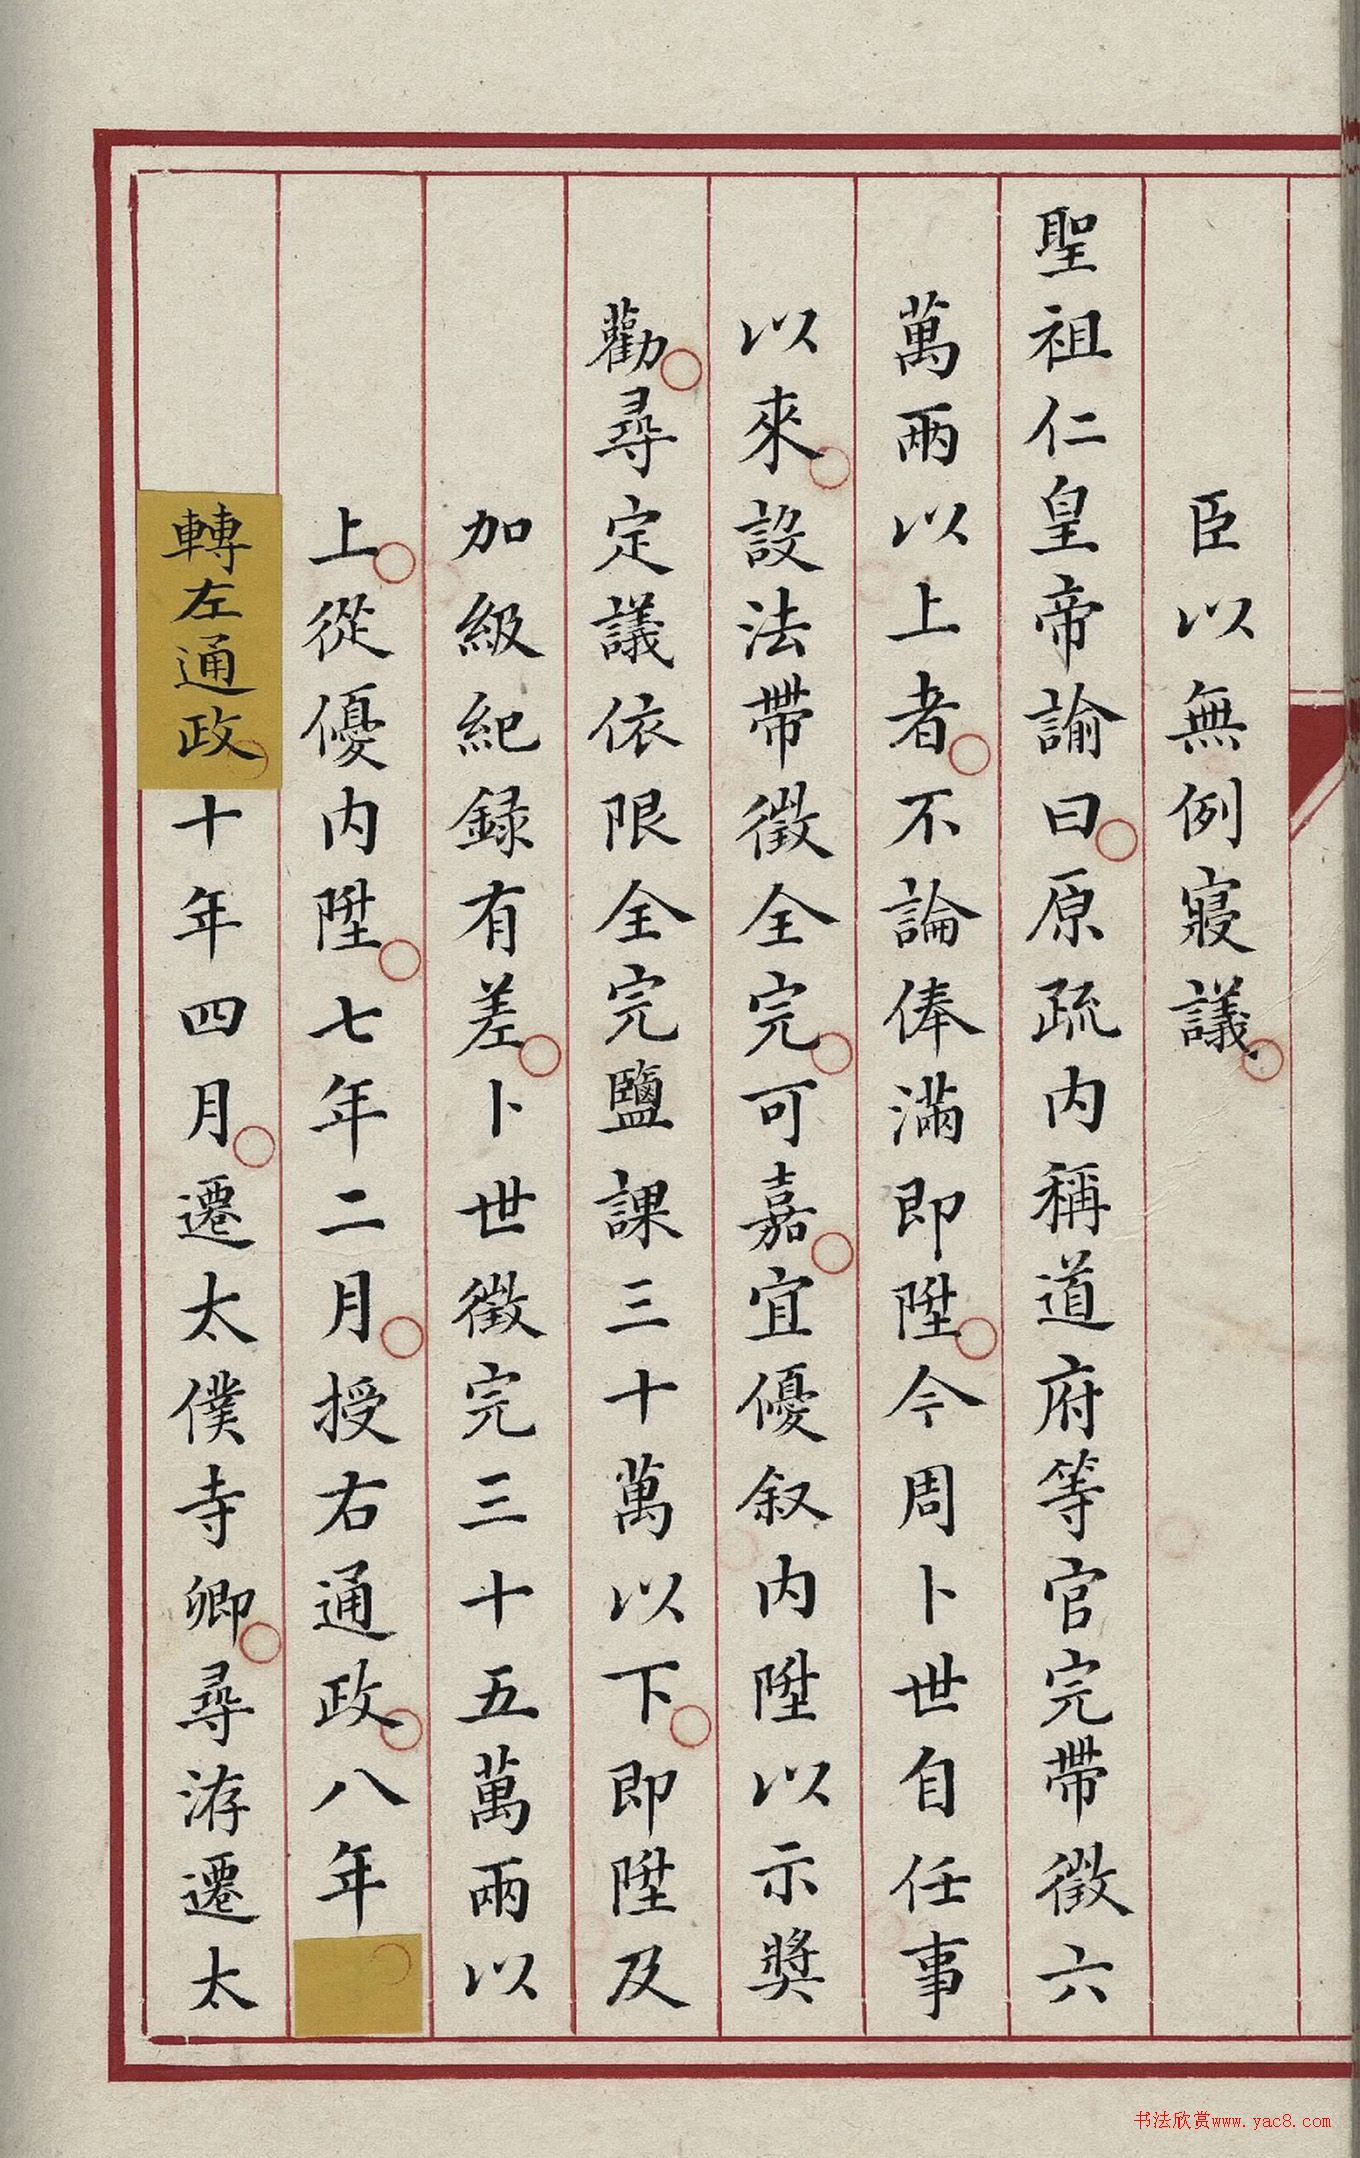 臣以無例寢議
聖祖仁皇帝諭曰原疏内稱道府等官完帶徵六
萬兩以上者不論俸滿即陞今周卜世自任事
以來設法帶徵全完可嘉宜優叙内陞以示獎
勸尋定議依限全完鹽課三十萬以下即陞及
加級紀録有差卜世徵完三十五萬兩以
上從優内陞七年二月授右通政八年
轉左通政十年四月遷太僕寺卿尋洊遷太
书法欣赏www.yac8.com